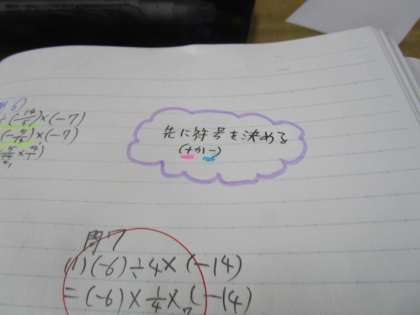 ×(-7)
×(-7)
先に符号を決める
(+か-)
問7
(1)(-6)÷4×(-14)
=(-6)×1/4×(-14)